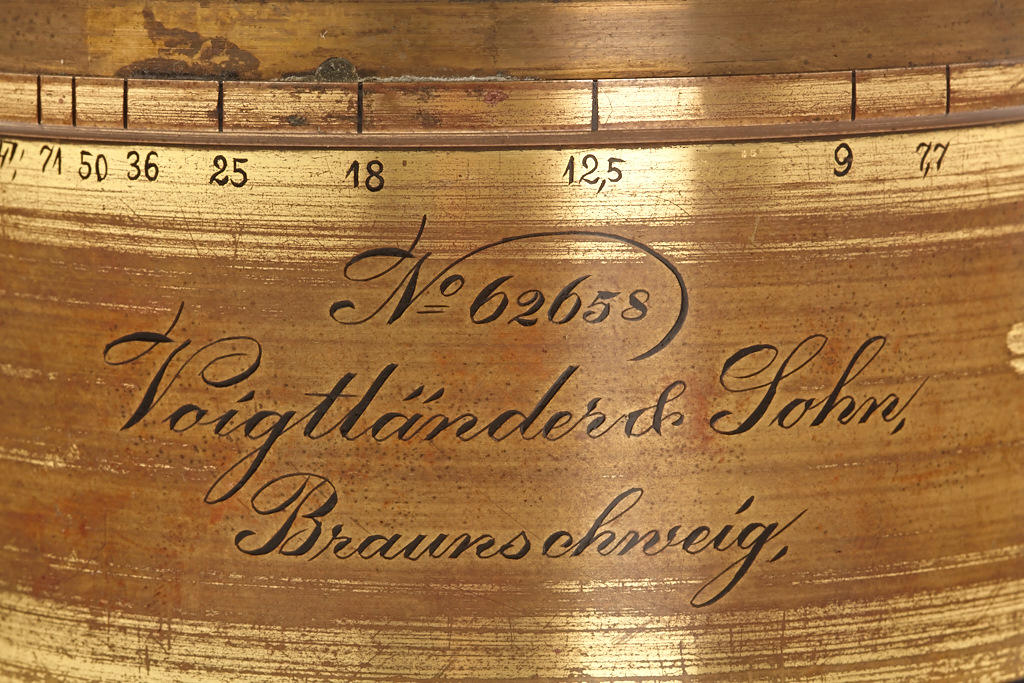 71 50 36 25 18 12,5 9 7,7
No 62658
Voigtländer & Sohn,
Braunschweig,